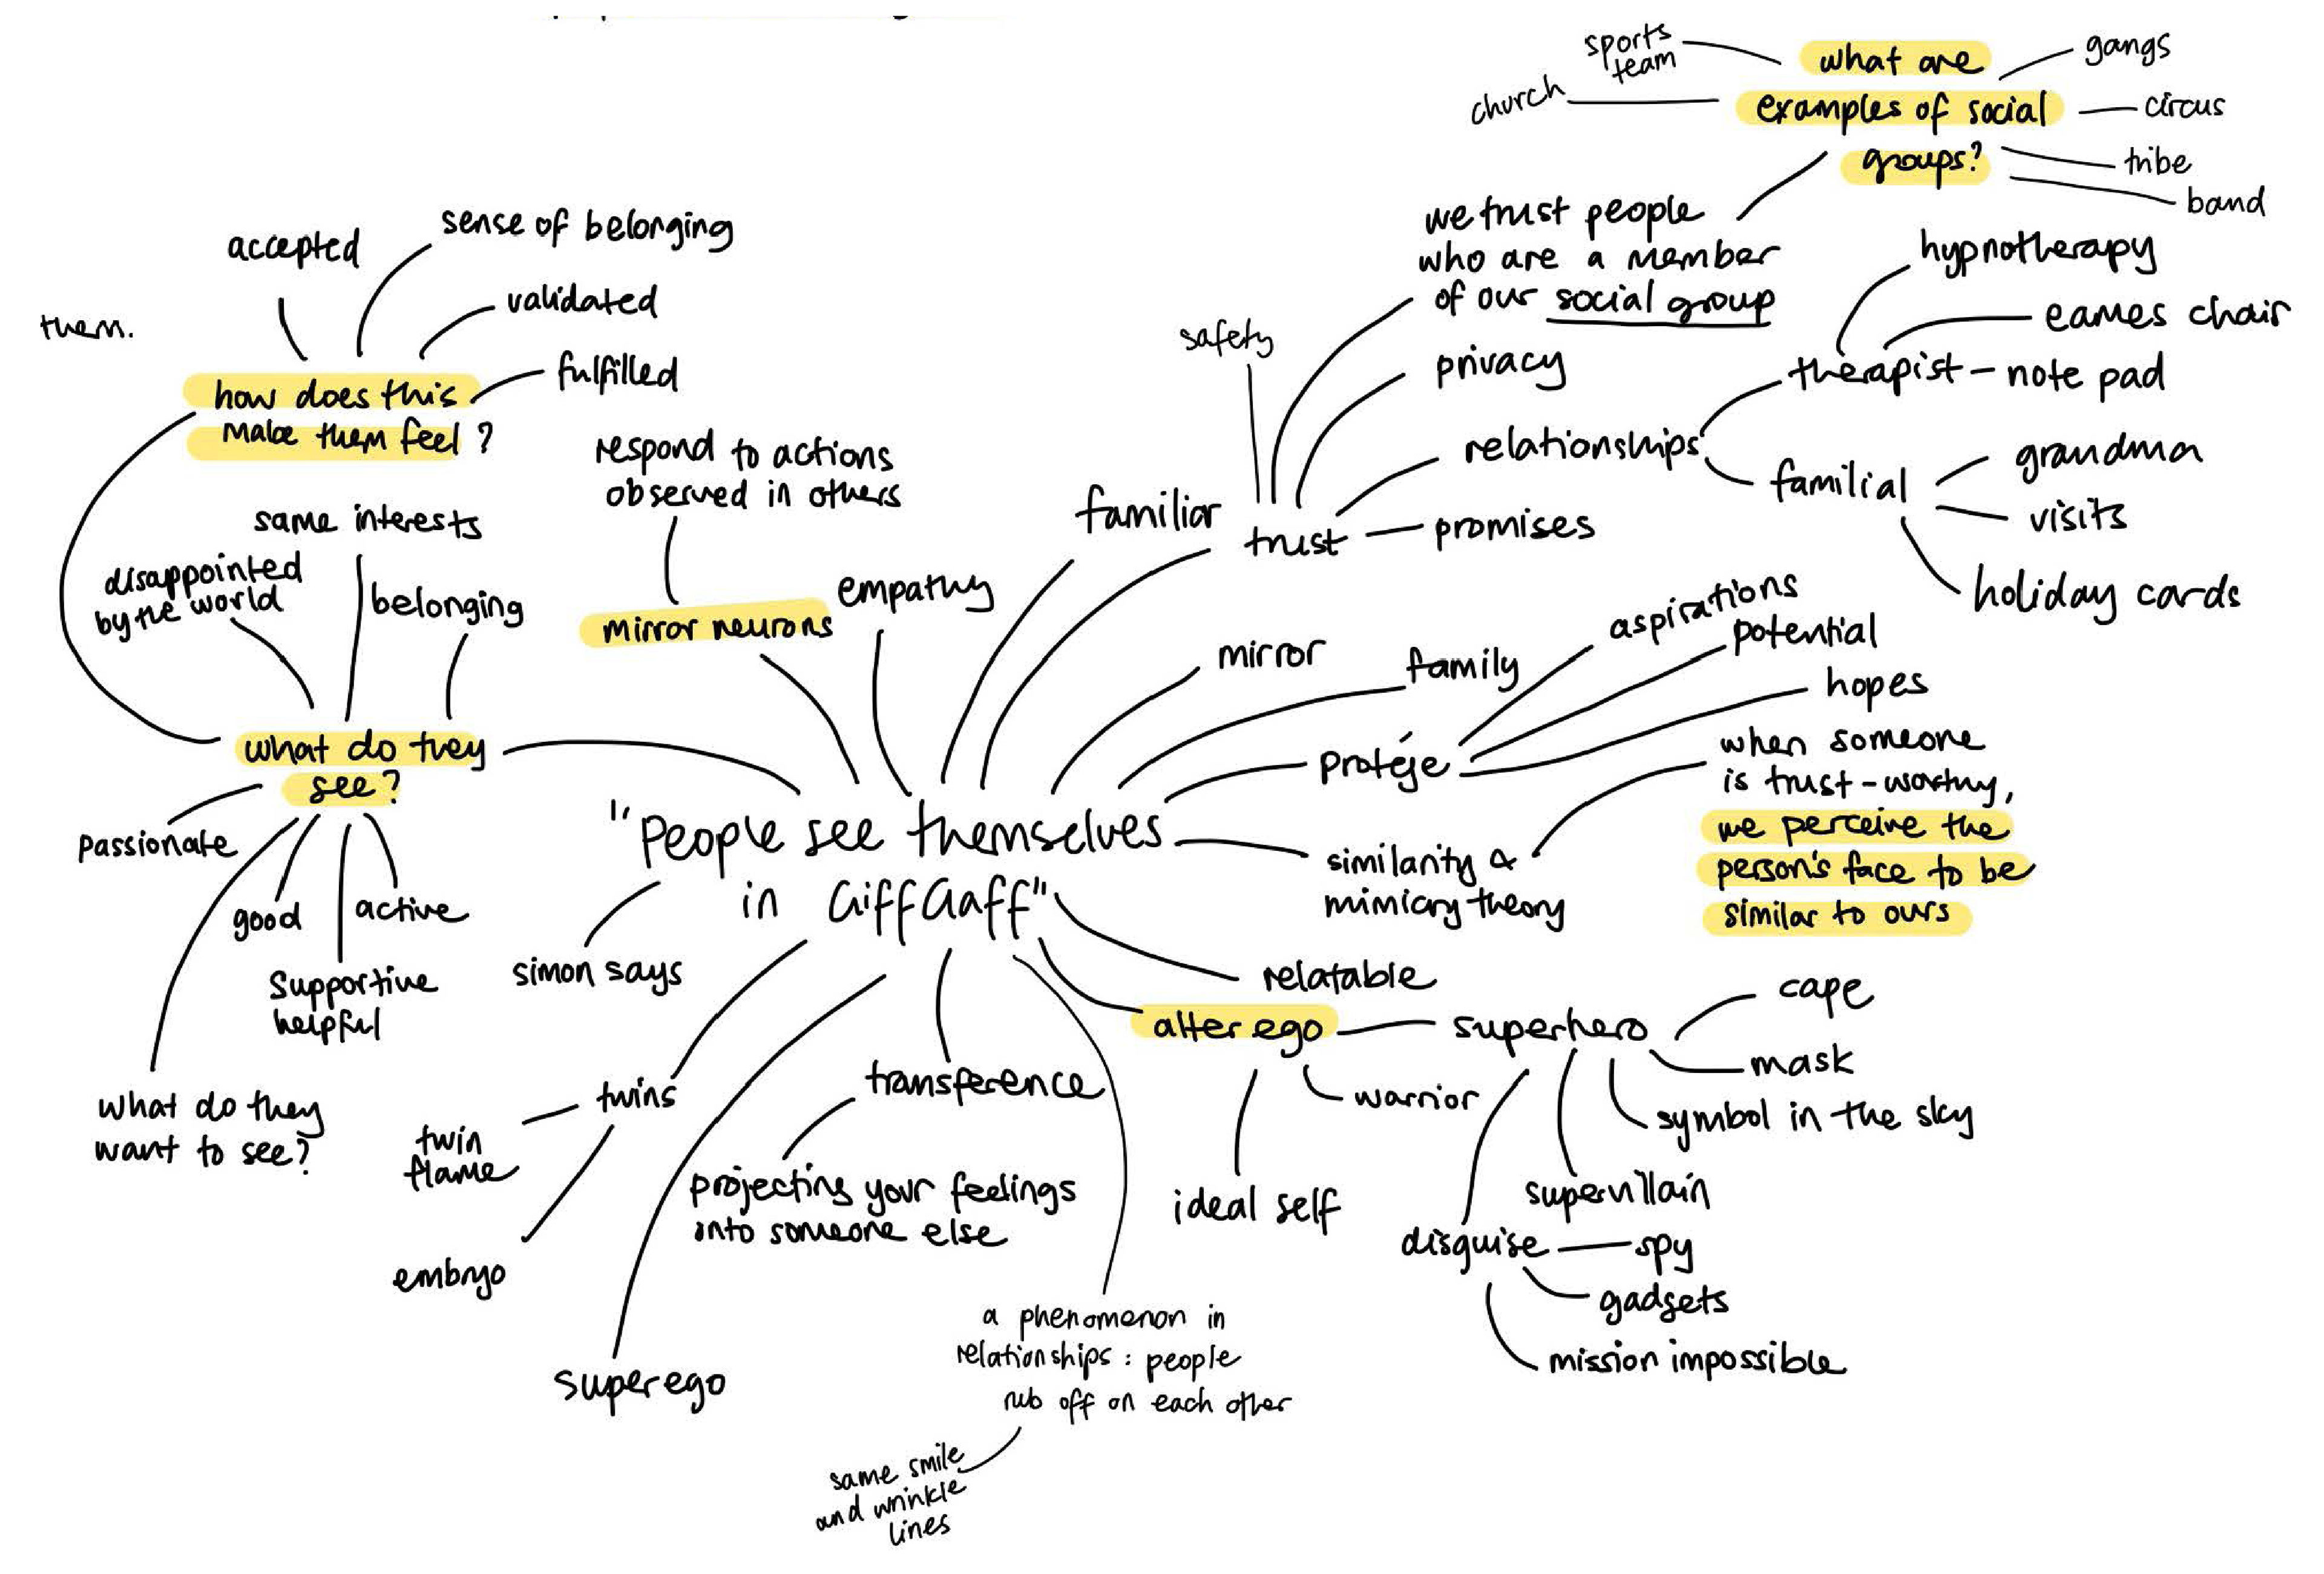 sports
team
church
what are
examples of social
groups?
gangs
circus
tribe
band
we trust people
who are a member
of our social group
hypnotherapy
eames chair
therapist - note pad
safety
privacy
relationships
familial
grandma
visits
holiday cards
familiar
trust
promises
accepted
sense of belonging
validated
fulfilled
them.
how does this
make them feel ?
respond to actions
observed in others
same interests
disappointed
by the world
belonging
mirror neurons
empathy
mirror
family
aspirations
potential
hopes
protéje
what do they
see?
when someone
is trust-worthy,
we perceive the
person's face to be
similar to ours
"People see themselves
in GiffGaff"
similarity &
mimicry theory
passionate
good
active
supportive
helpful
simon says
what do they
want to see?
relatable
alter ego
superhero
cape
mask
symbol in the sky
warrior
supervillain
ideal self
disguise
spy
gadgets
mission impossible
twins
twin
flame
embryo
transference
projecting your feelings
into someone else
superego
a phenomenon in
relationships : people
rub off on each other
same smile
and wrinkle
lines